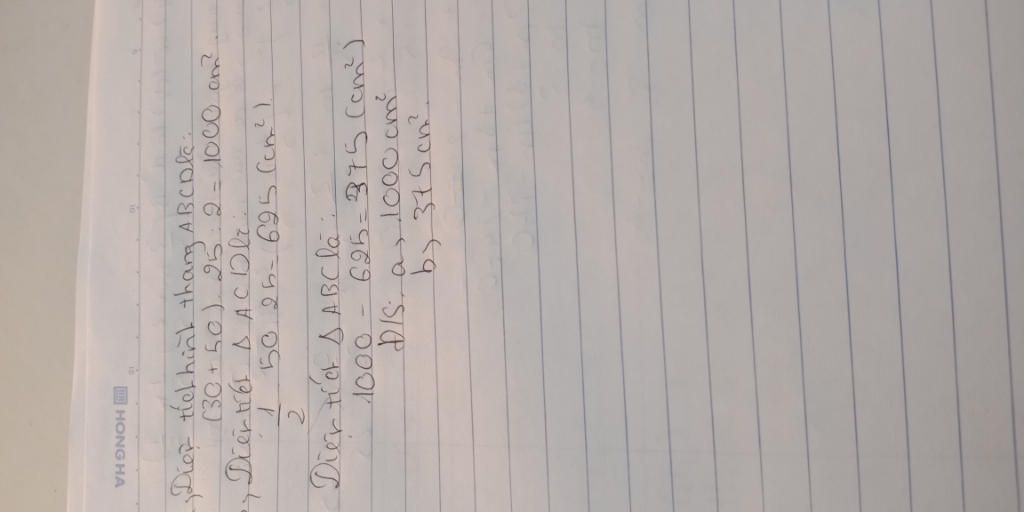 HONG HA
, Diện tích hình thang ABCD là:
(30 + 50) . 25 : 2 = 1000 cm²
, Diện tích Δ ACD là:
1/2 . 50 . 25 = 625 (cm²)
Diện tích Δ ABC là:
1000 - 625 = 375 (cm²)
Đ/S: a, 1000 cm²
b, 375 cm²